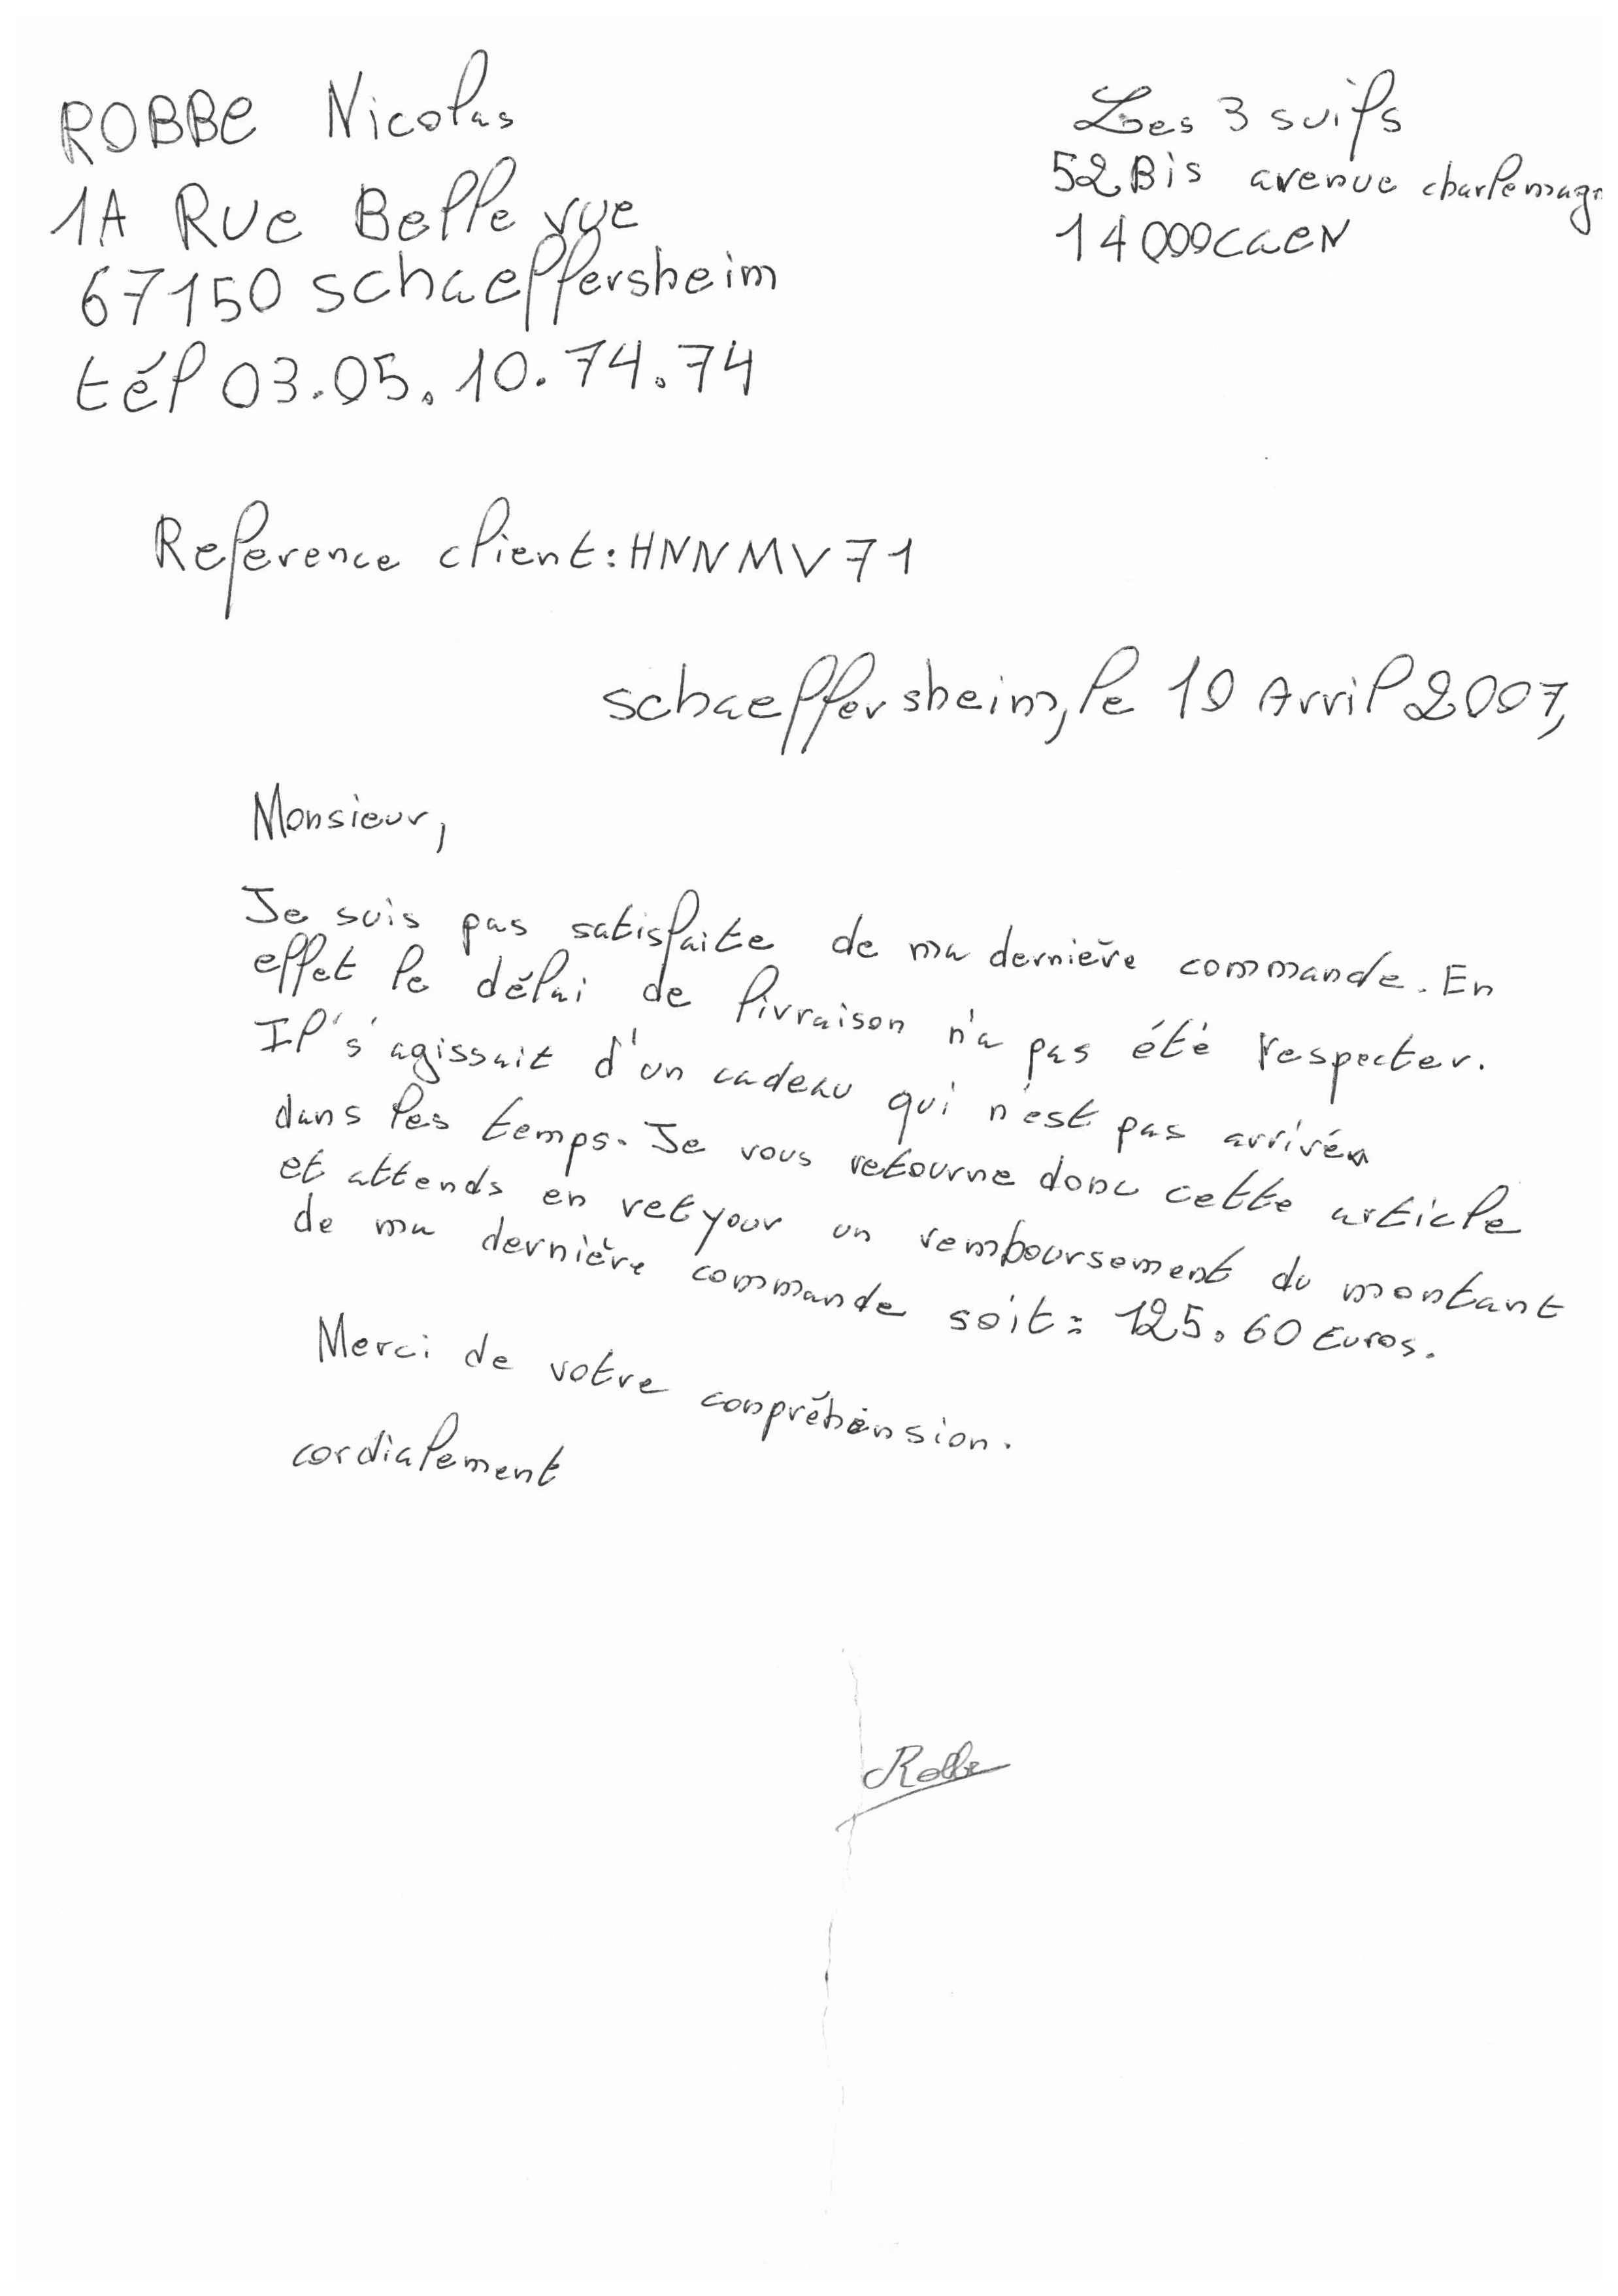 ROBBE Nicolas
1A Rue Belle vue
67150 schaeffersheim
tél 03.05.10.74.74
Les 3 suifs
52 Bis avenue charlemagn
14000 CAEN
Reference client: HNNMV71
schaeffersheim, le 10 Avril 2007,
Monsieur,
Je suis pas satisfaite de ma dernière commande. En
effet le délai de livraison n'a pas été respecter.
Il s'agissait d'un cadeau qui n'est pas arrivéa
dans les temps. Je vous retourne donc cette article
et attends en retyour un remboursement du montant
de ma dernière commande soit: 125.60 Euros.
Merci de votre conpréhension.
cordialement
Robbe